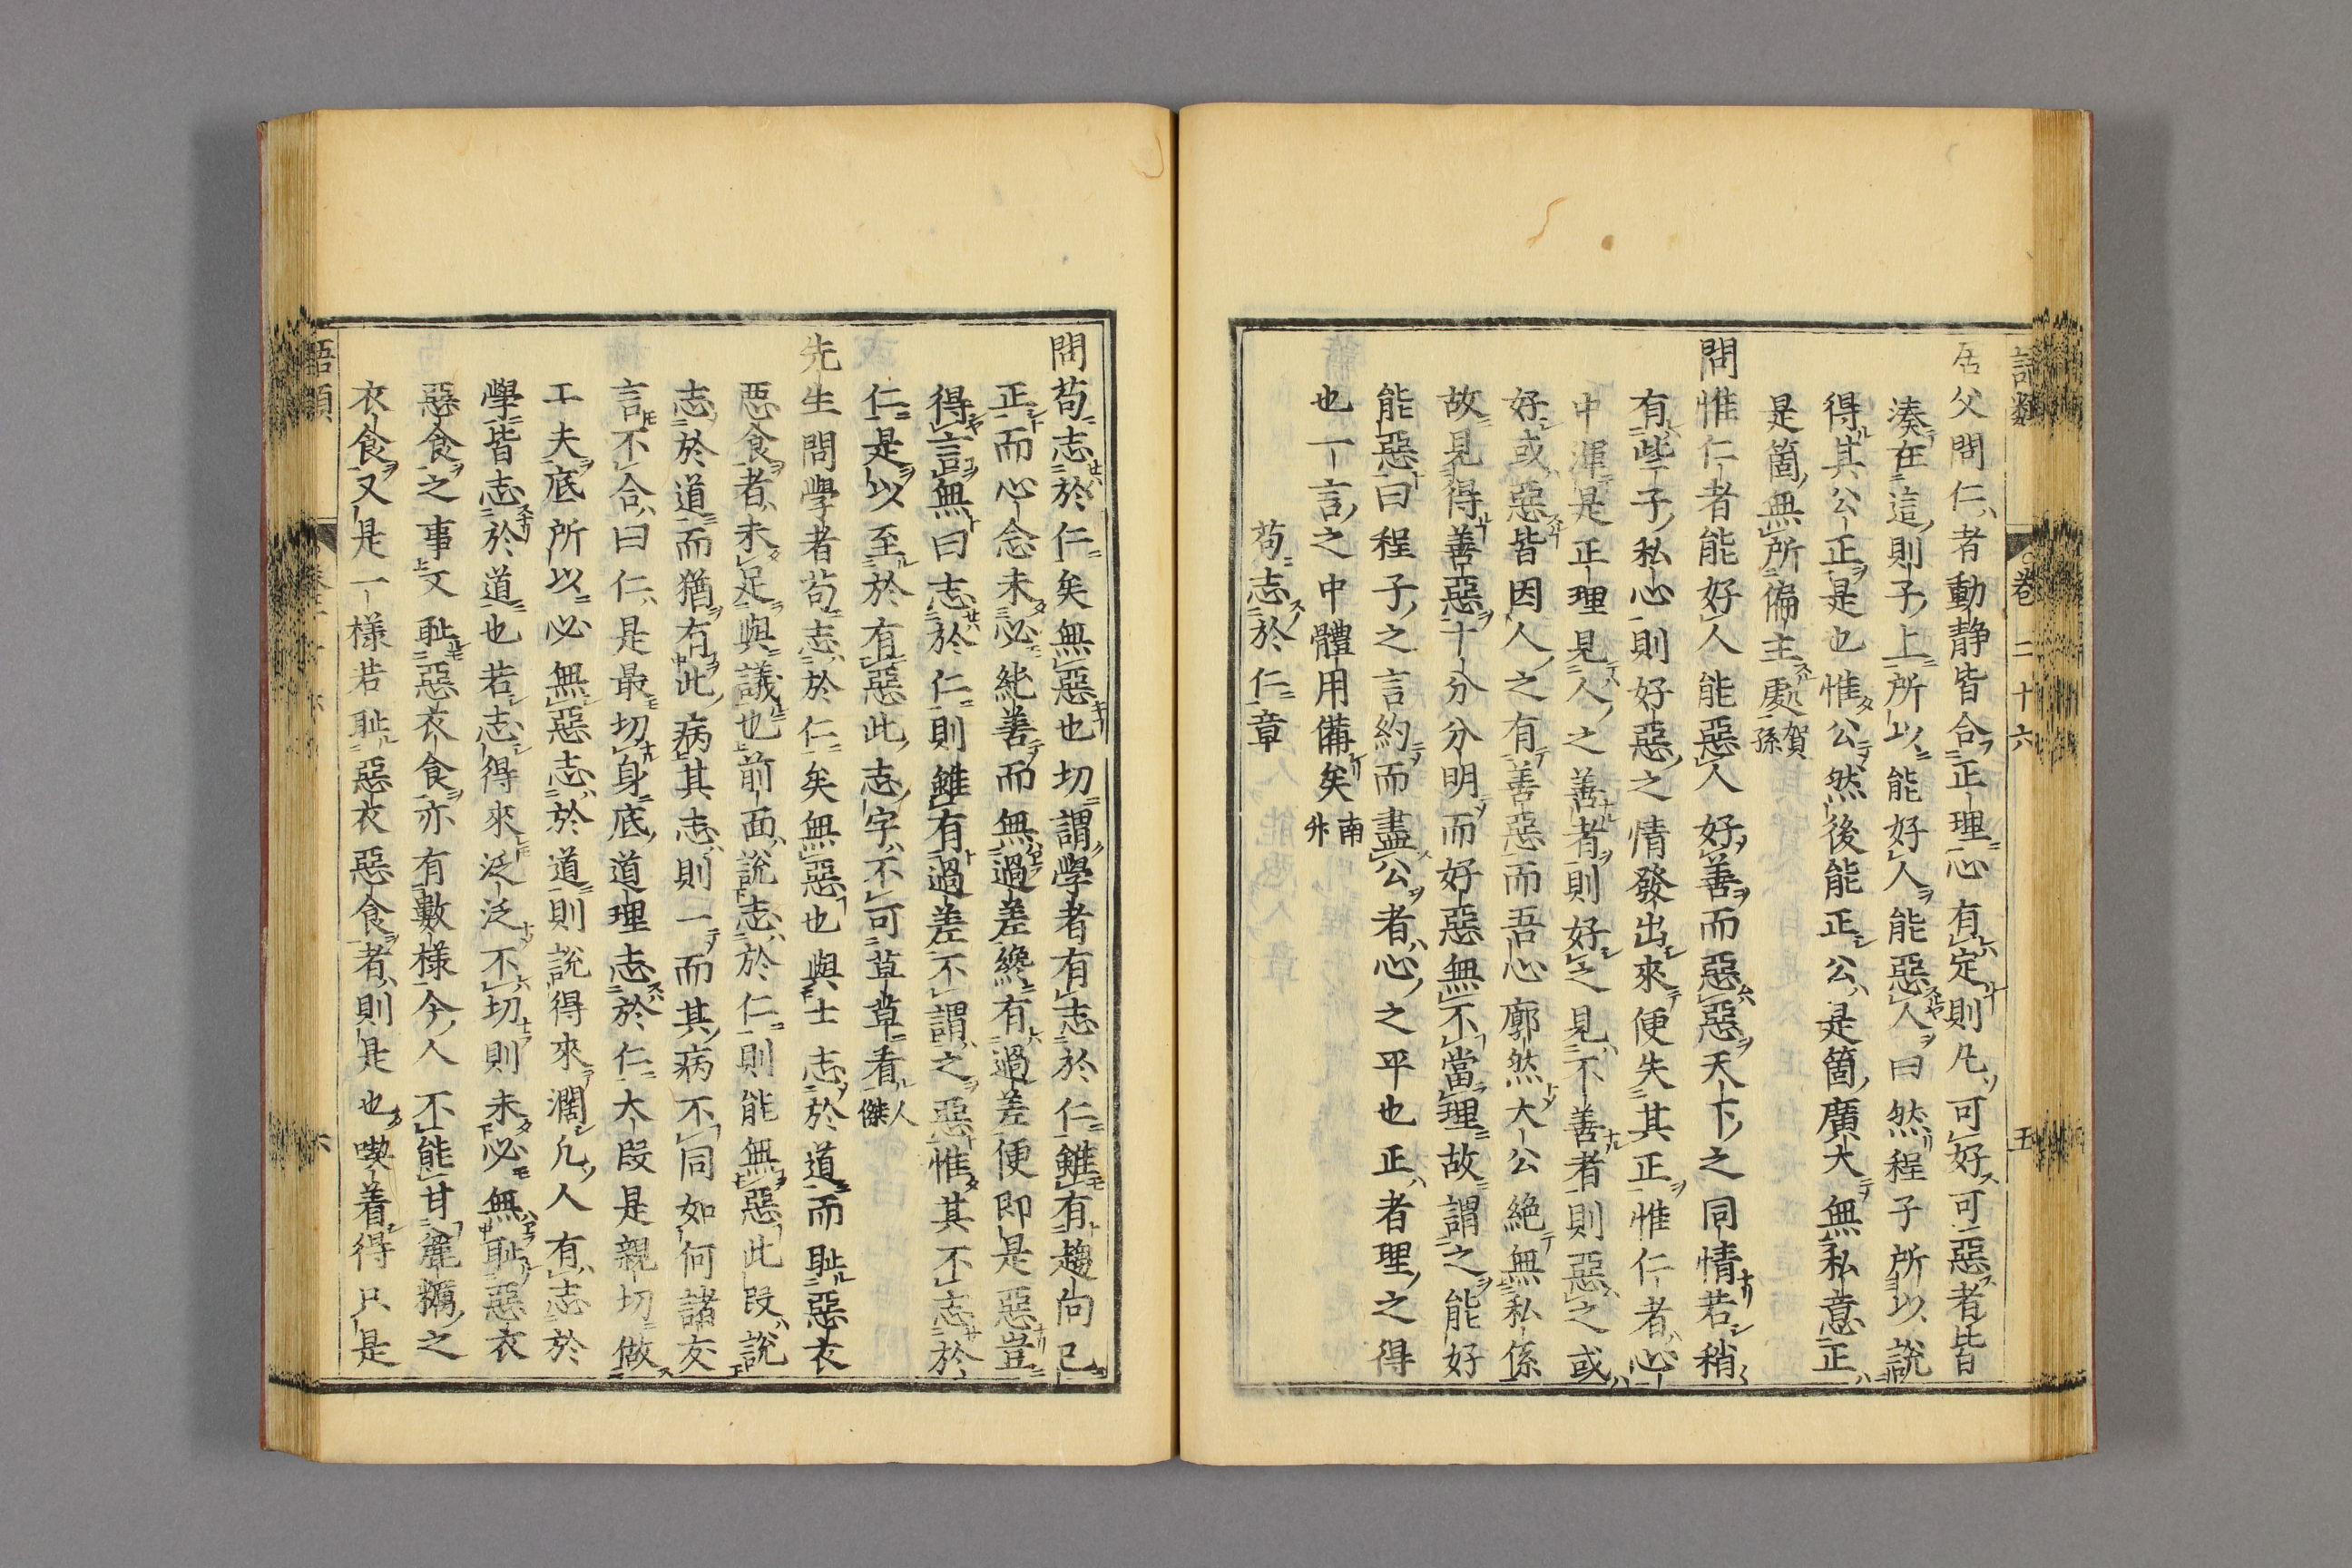 語類
卷二十六
五
居父問仁者動靜皆合正理心有定則凡可好可惡者皆
湊在這則子上所以能好人能惡人曰然程子所以說
得其公正是也惟公然後能正公是箇廣大無私意正
是箇無所偏主處賀孫
問惟仁者能好人能惡人好善而惡惡天下之同情若稍
有些子私心則好惡之情發出來便失其正惟仁者心
中渾是正理見人之善者則好之見不善者則惡之或
好或惡皆因人之有善惡而吾心廓然大公絶無私係
故見得善惡十分分明而好惡無不當理故謂之能好
能惡曰程子之言約而盡公者心之平也正者理之得
也一言之中體用備矣南升
苟志於仁章
問苟志於仁矣無惡也切謂學者有志於仁雖有趨向已
正而心念未必純善而無過差纔有過差便即是惡豈
得言無曰志於仁則雖有過差不謂之惡惟其不志於
仁是以至於有惡此志字不可草草看人傑
先生問學者苟志於仁矣無惡也與士志於道而恥惡衣
惡食者未足與議也前面說志於仁則能無惡此段說
志於道而猶有此病其志則一而其病不同如何諸友
言不合曰仁是最切身底道理志於仁大段是親切做
工夫底所以必無惡志於道則說得來濶凡人有志於
學皆志於道也若志得來泛泛不切則未必無恥惡衣
惡食之事又恥惡衣食亦有數樣今人不能甘麤糲之
衣食又是一樣若恥惡衣惡食者則是也喫着得只是
語類
六